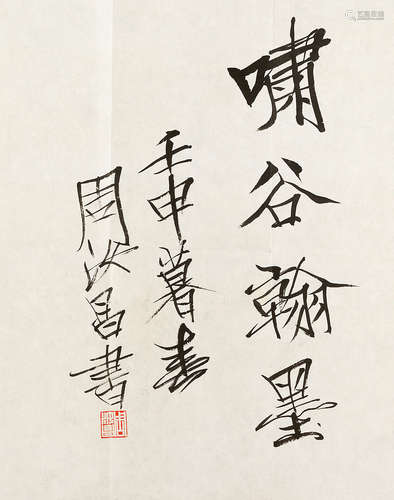 啸谷翰墨
壬申暮春
周汝昌书